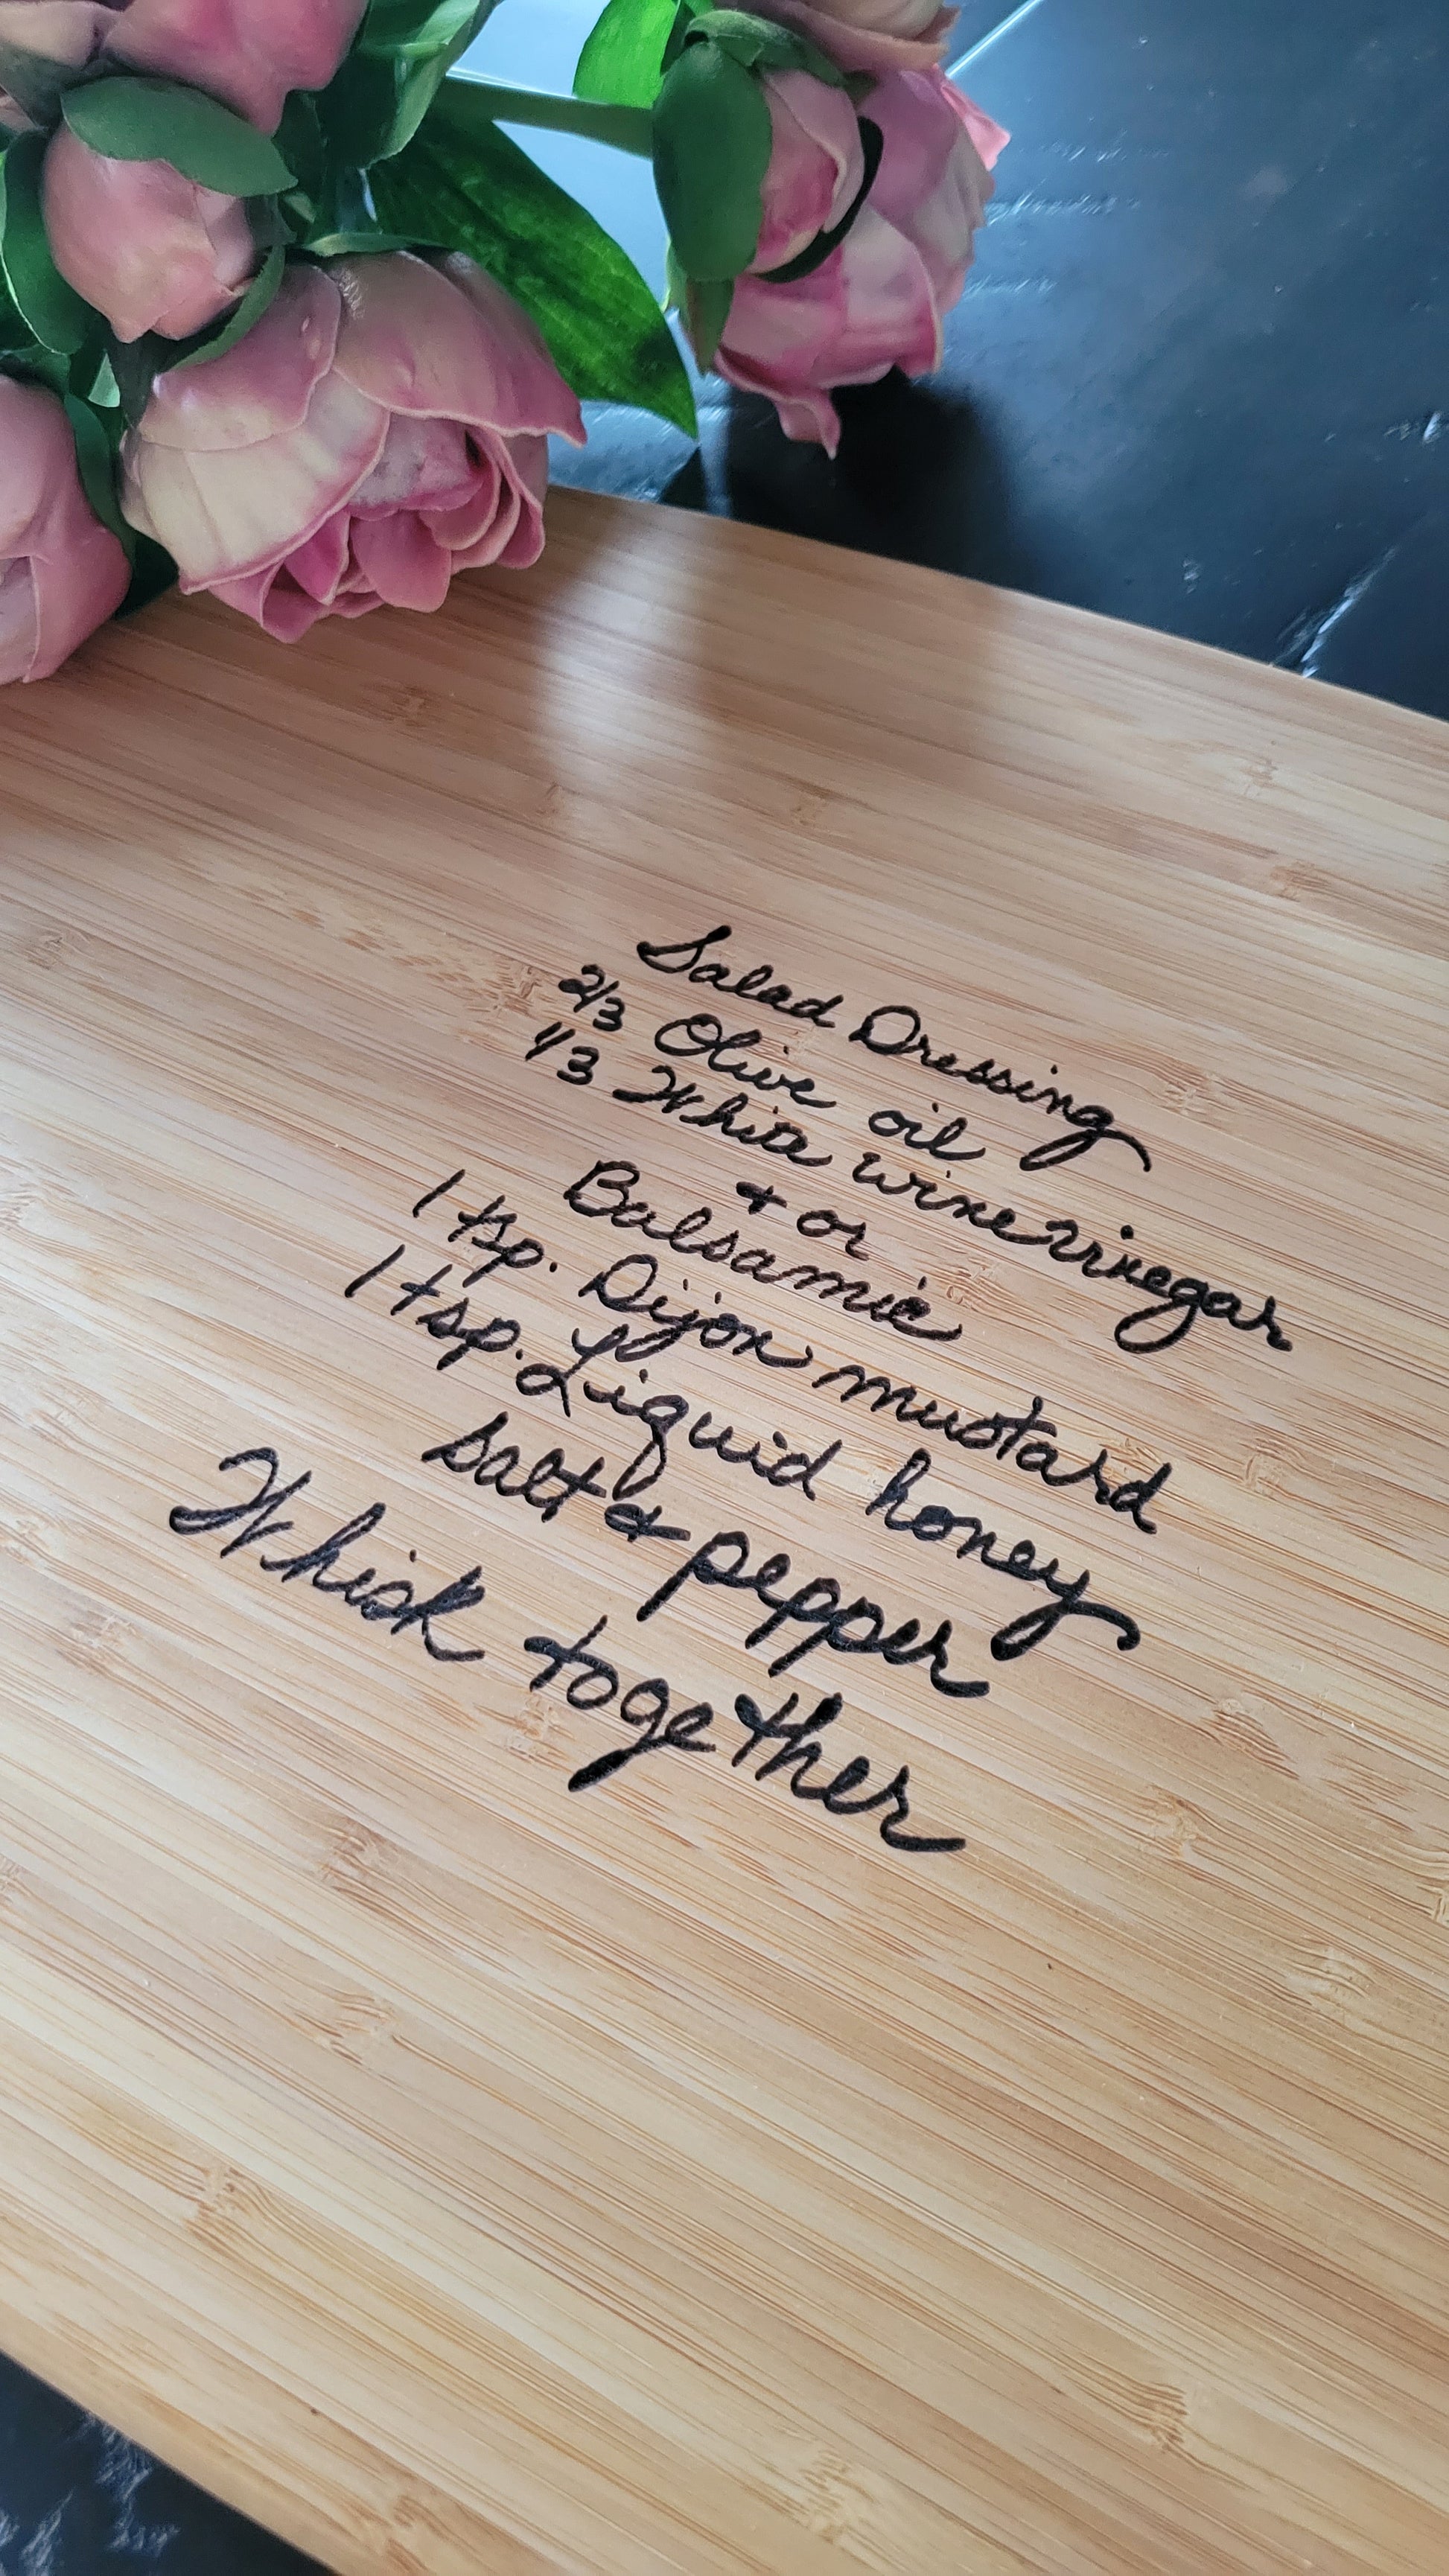 Salad Dressing
2/3 Olive oil
1/3 White wine vinegar
+ or
Balsamic
1 tsp. Dijon mustard
1 tsp. Liquid honey
salt & pepper
Whisk together